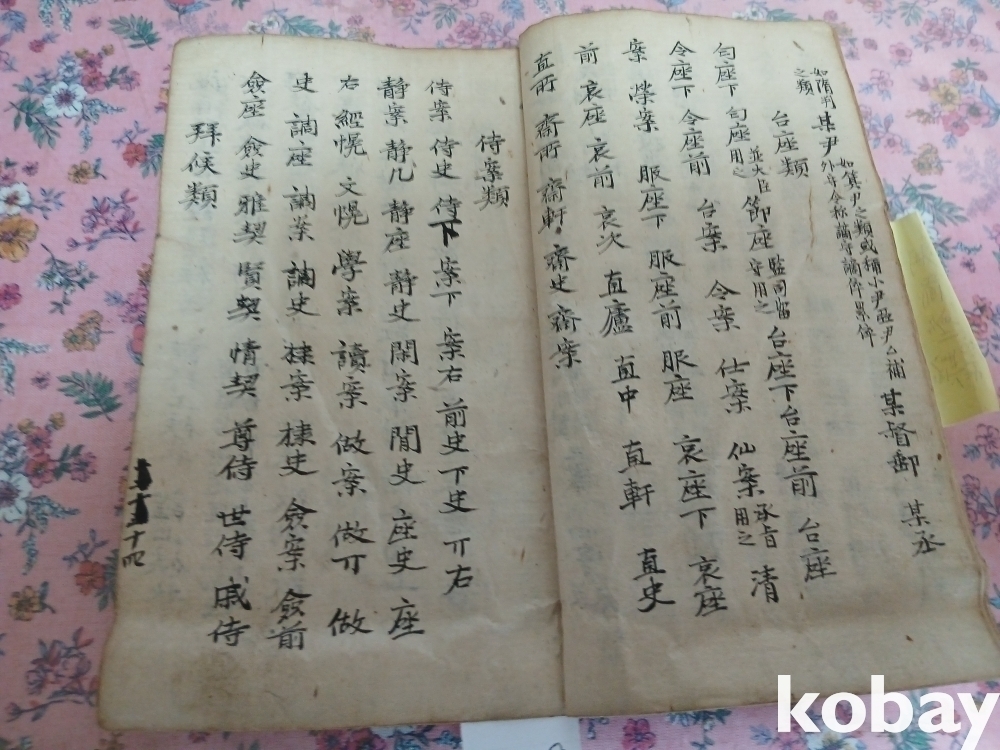 如隋州之類 某尹 如箕尹之類或稱小尹 某督郵 某丞
台座類
台座下 台座前 台座
匀座下 匀座 用之 並大臣 節座 監司留守用之
令座下 令座前 台案 令案 仕案 仙案 承旨用之 清
案 荣案 服座下 服座前 服座 哀座下 哀座
前 哀座 哀前 哀次 直廬 直中 直軒 直史
直所 齋所 齋軒 齋史 齋案
侍案類
侍案 侍史 侍下 案下 案右 前史 下史 丌右
静案 静几 静座 静史 閑案 閒史 座史 座
右 經幌 文幌 學案 讀案 做案 做丌 做
史 調座 調案 調史 棣案 棣史 僉案 僉前
僉座 僉史 雅契 賢契 情契 尊侍 世侍 戚侍
拜候類
二十四
kobay